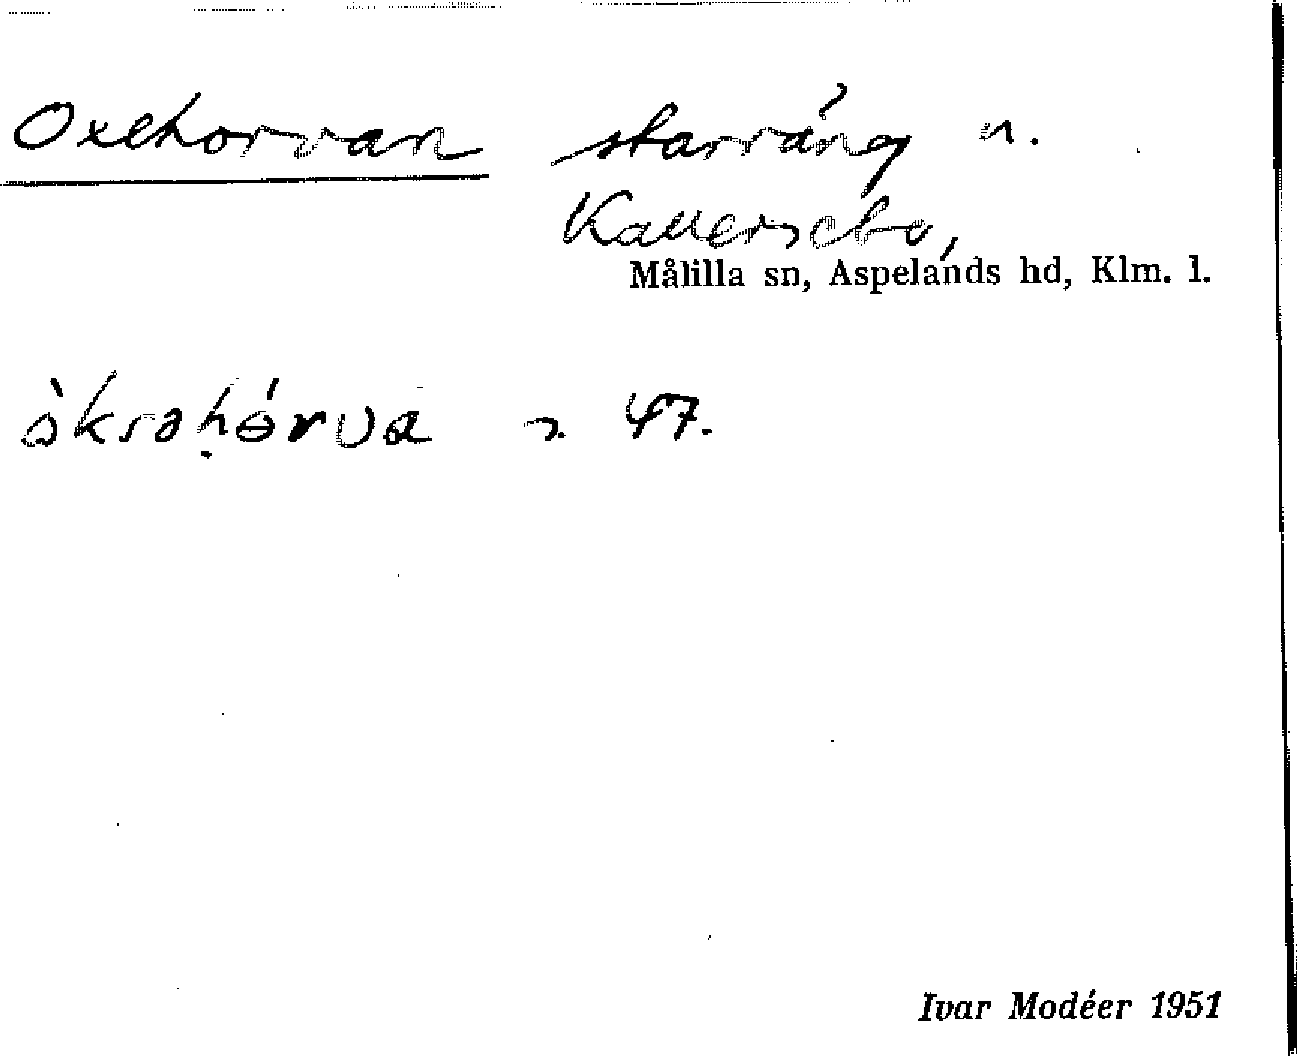 Oxehorvan starräng n.
Kallersebo,
Målilla sn, Aspelands hd, Klm. l.
òksəhórva 47.
Ivar Modéer 1951